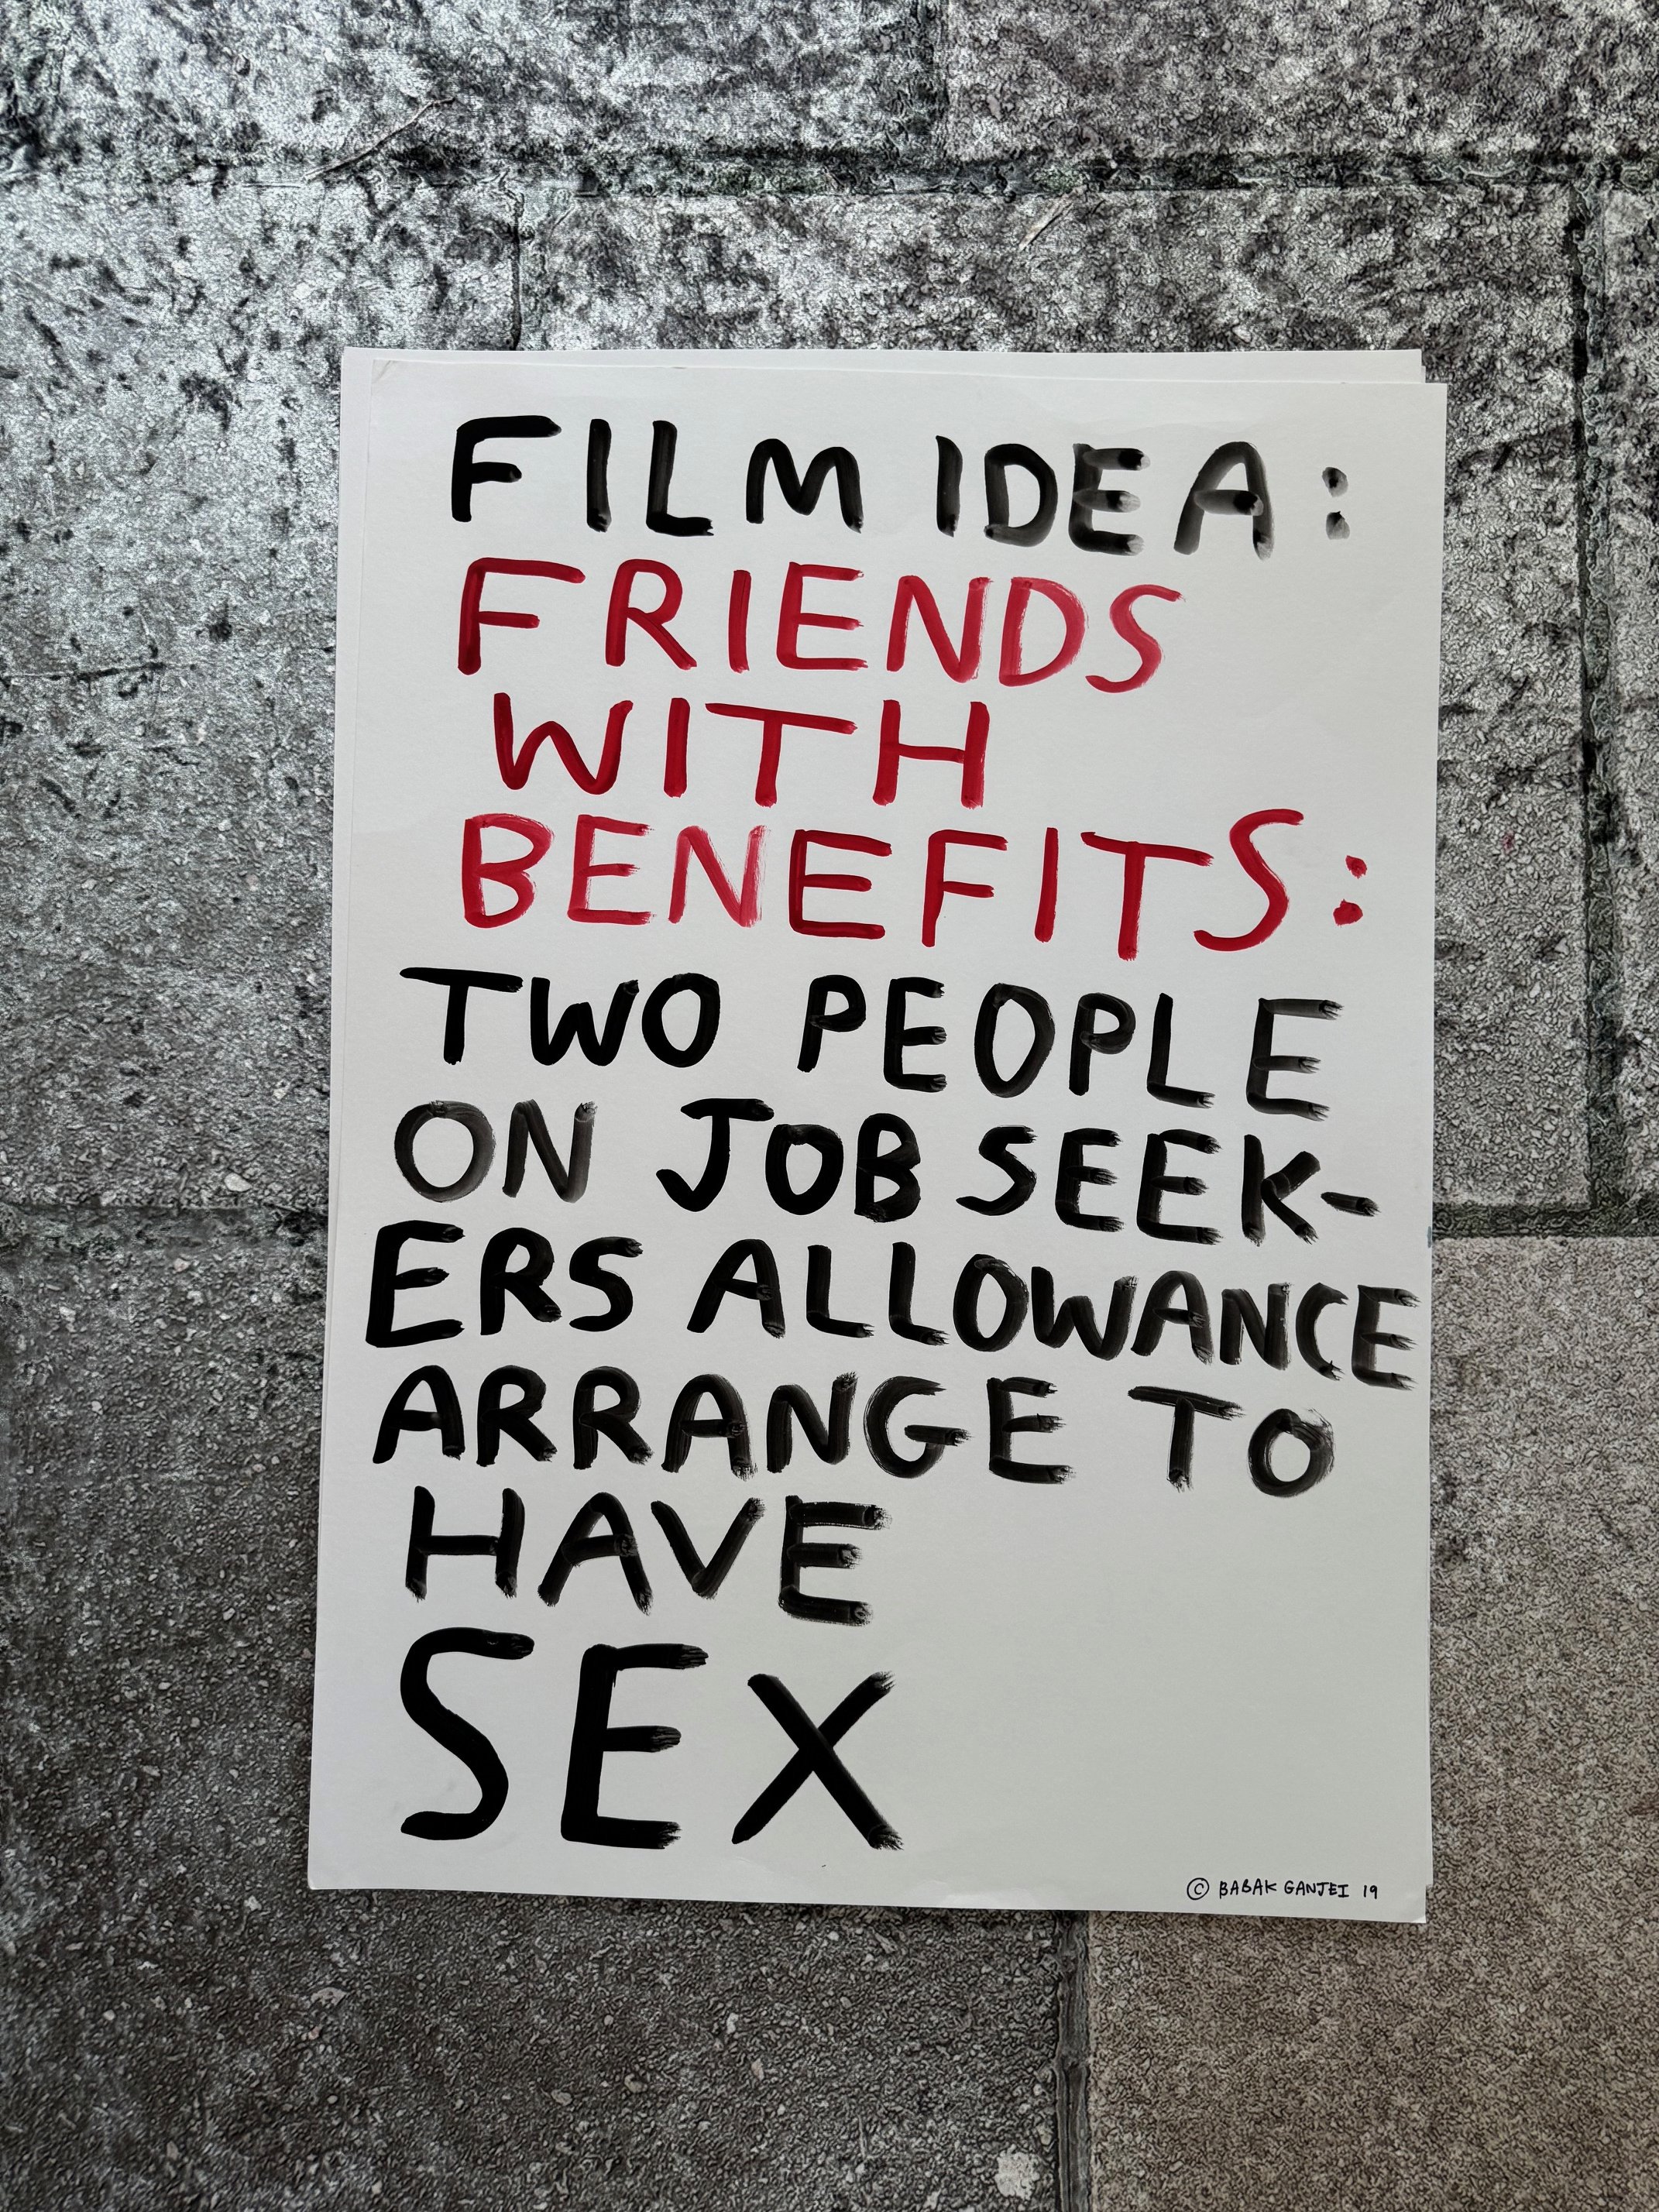 FILM IDEA:
FRIENDS
WITH
BENEFITS:
TWO PEOPLE
ON JOB SEEK-
ERS ALLOWANCE
ARRANGE TO
HAVE
SEX
© BABAK GANJEI 19